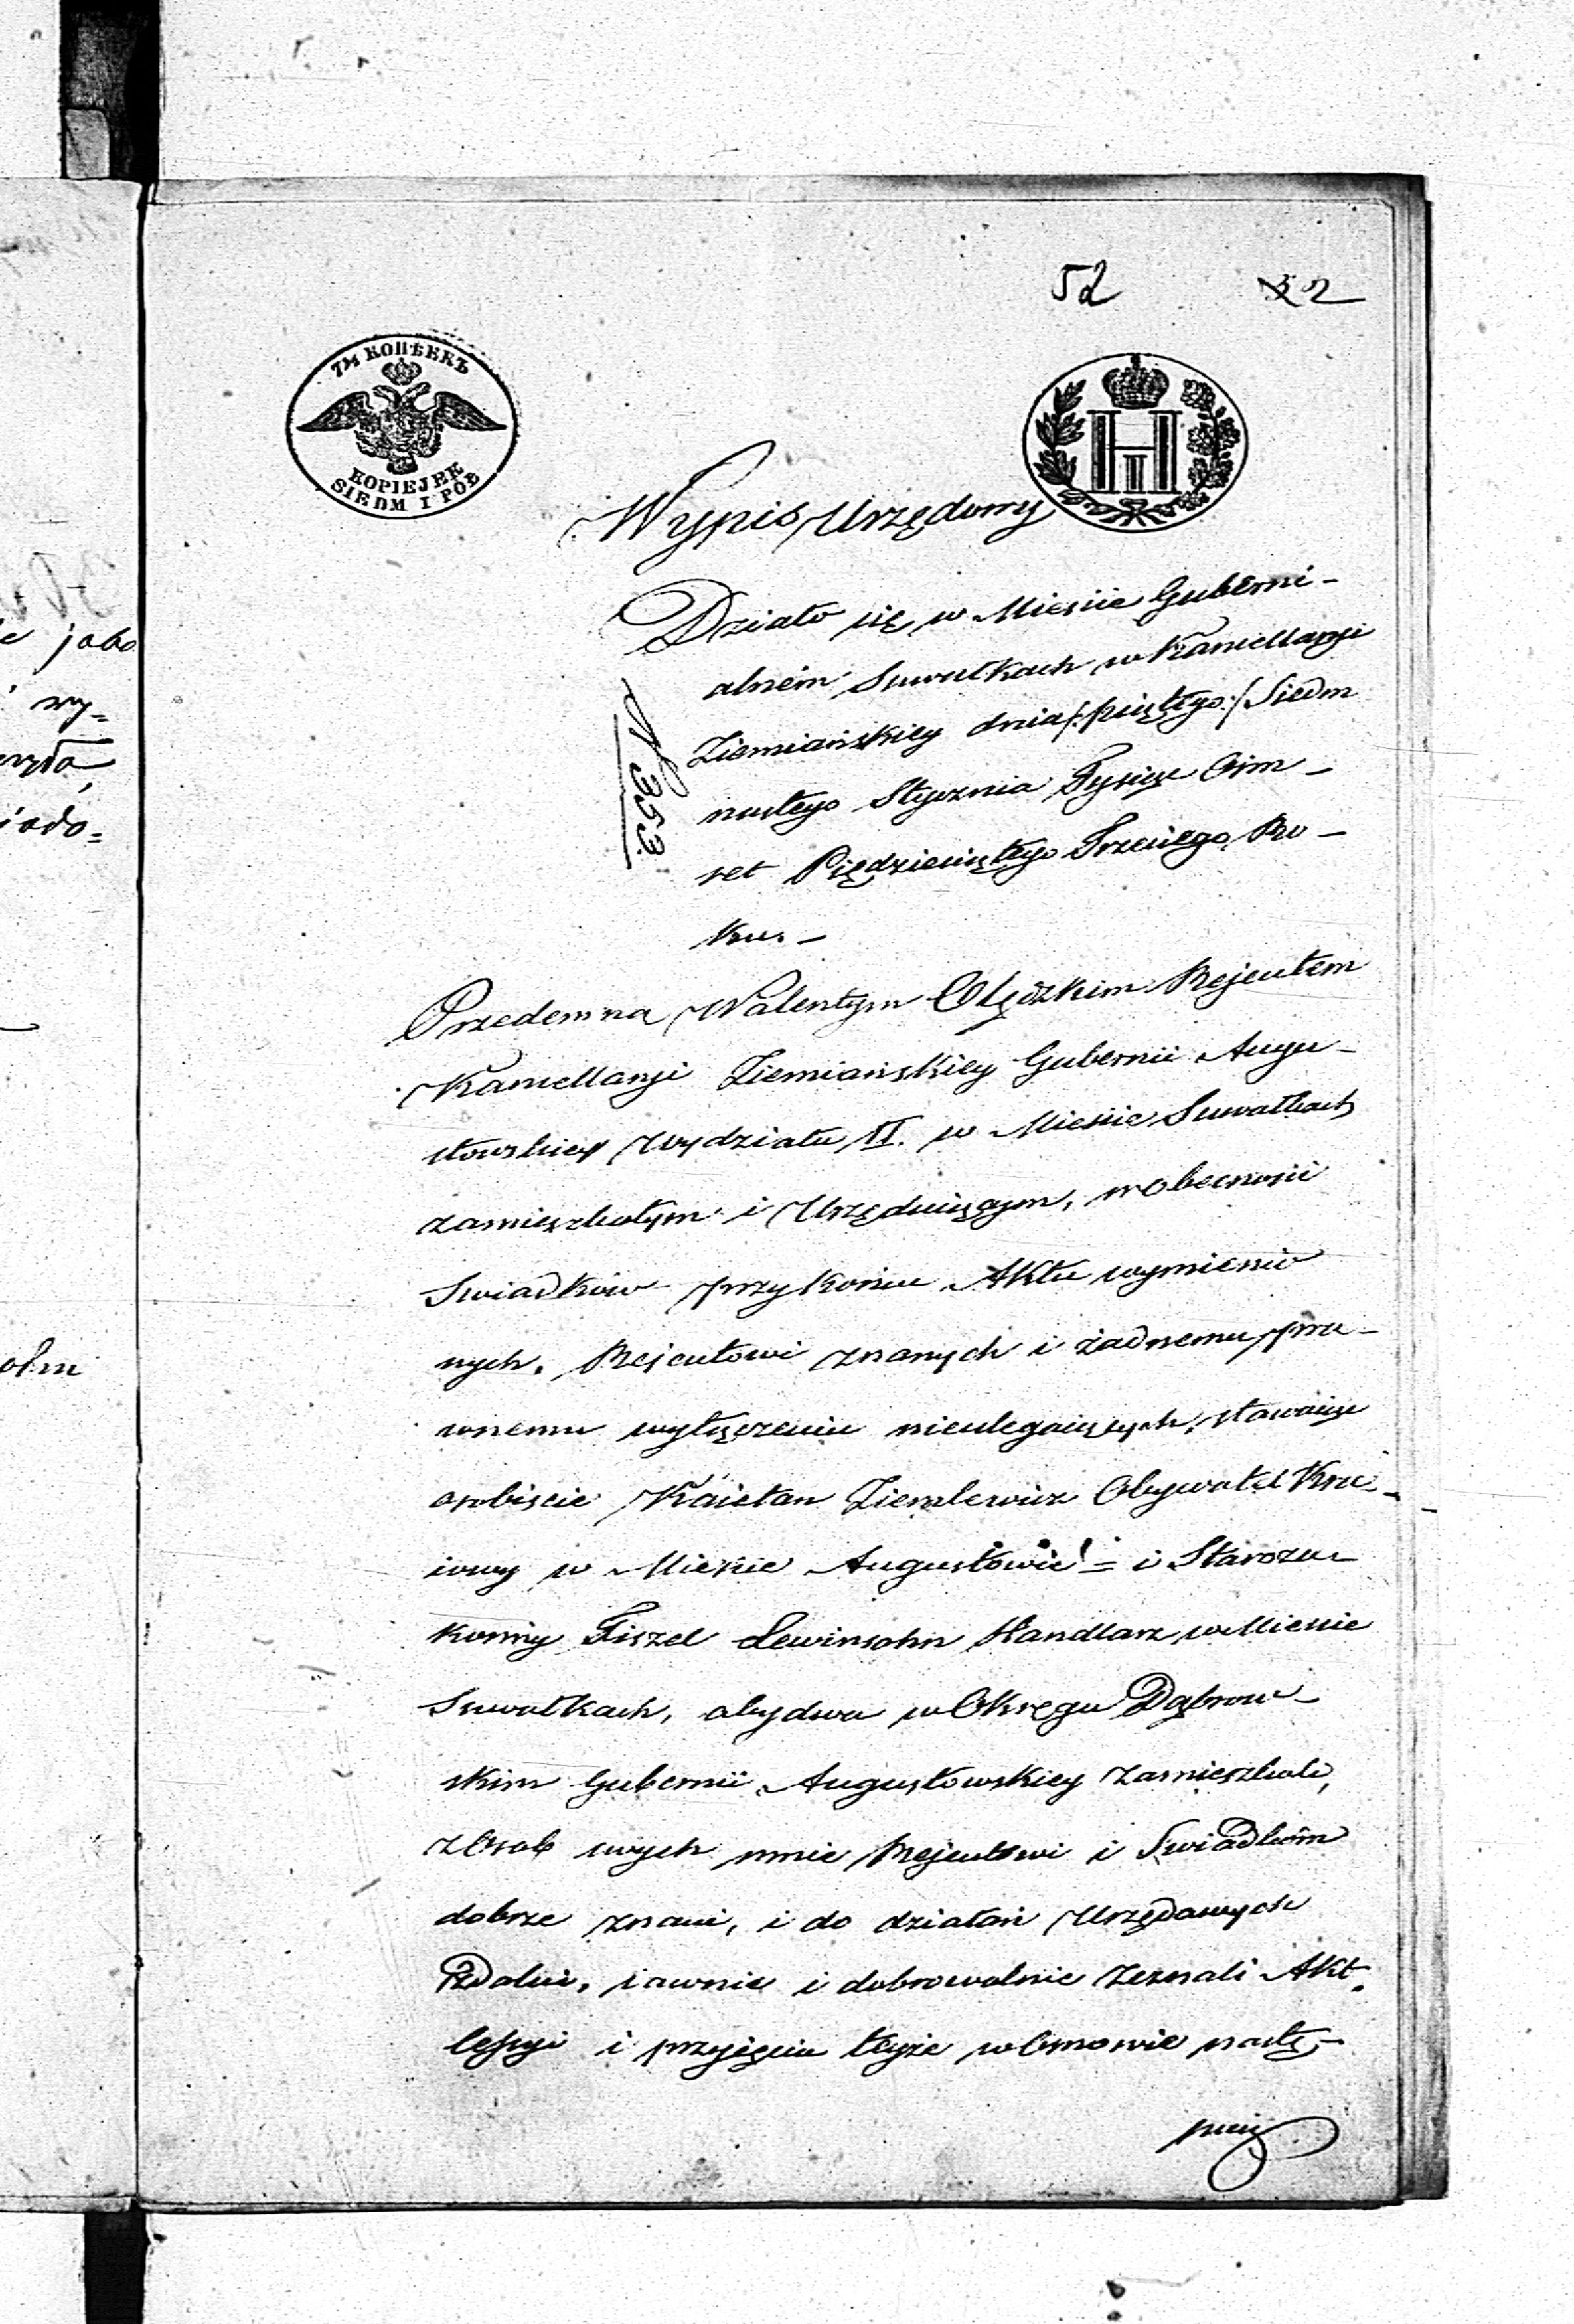 52 32
7½ КОПѢЕКЪ
KOPIEJEK
SIEDM I PÓŁ
Wypis Urzędowy
Działo się w Mieście Guberni-
alnem Suwałkach w Kancellaryi
Ziemiańskiey dnia /:piątego:/ Siedm
nastego Stycznia Tysiąc Ośm-
set Pięćdziesiątego Trzeciego Ro-
ku. -
N 353
Przedemna Walentym Rejentem
Kancellaryi Ziemiańskiey Gubernii Augu-
stowskiey Wydziału II. w Mieście Suwałkach
zamieszkałym i Urzędującym, w obecności
Swiadków przy końcu Aktu wymienio
nych, Rejentowi znanych i żadnemu pra-
wnemu wyłączeniu nieulegaiących, stawaiąc
osobiście Kaietan Ziemlewicz Obywatel Kra-
iowy w Mieście Augustowie = i Staroza-
konny Fiszel Lewinsohn Handlarz w Mieście
Suwałkach, obydwa w Okręgu Dąbrow-
skim Gubernii Augustowskiey zamieszkali,
z Osób swych mnie Rejentowi i Swiadkom
dobrze znani, i do działań Urzędowych
zdolni, iawnie i dobrowolnie zeznali Akt
Cessyi i przyjęcia teyże w Osnowie nastę-
puią
e jako
wy=
iado=